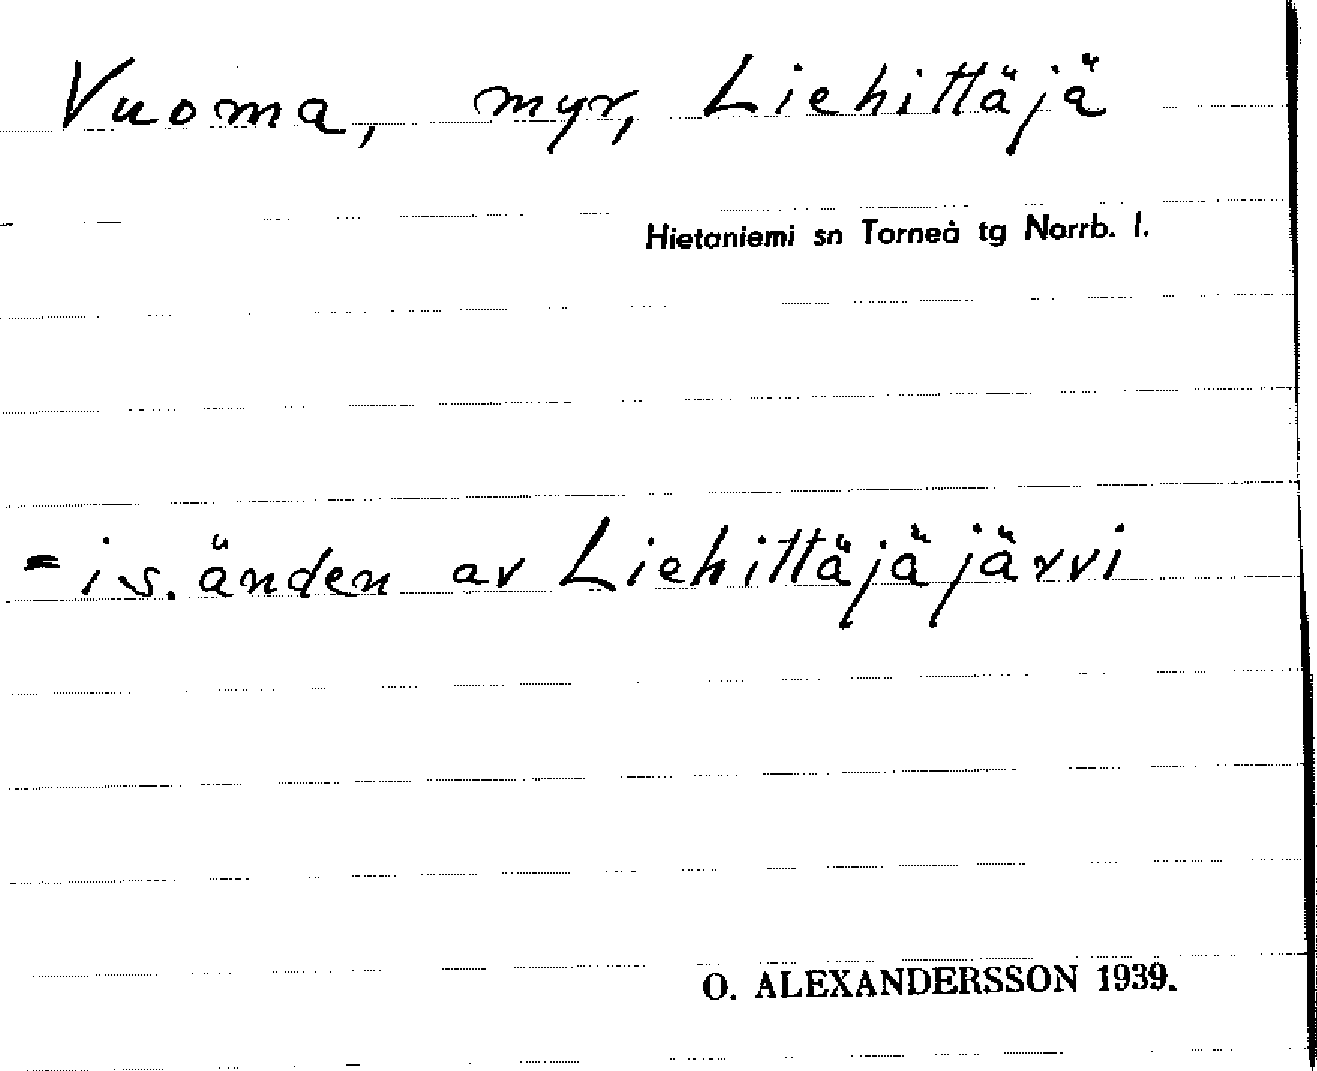 Vuoma, myr, Liehittäjä
Hietaniemi sn Torneå tg Norrb. l.
- i s. änden av Liehittäjäjärvi
O. ALEXANDERSSON 1939.